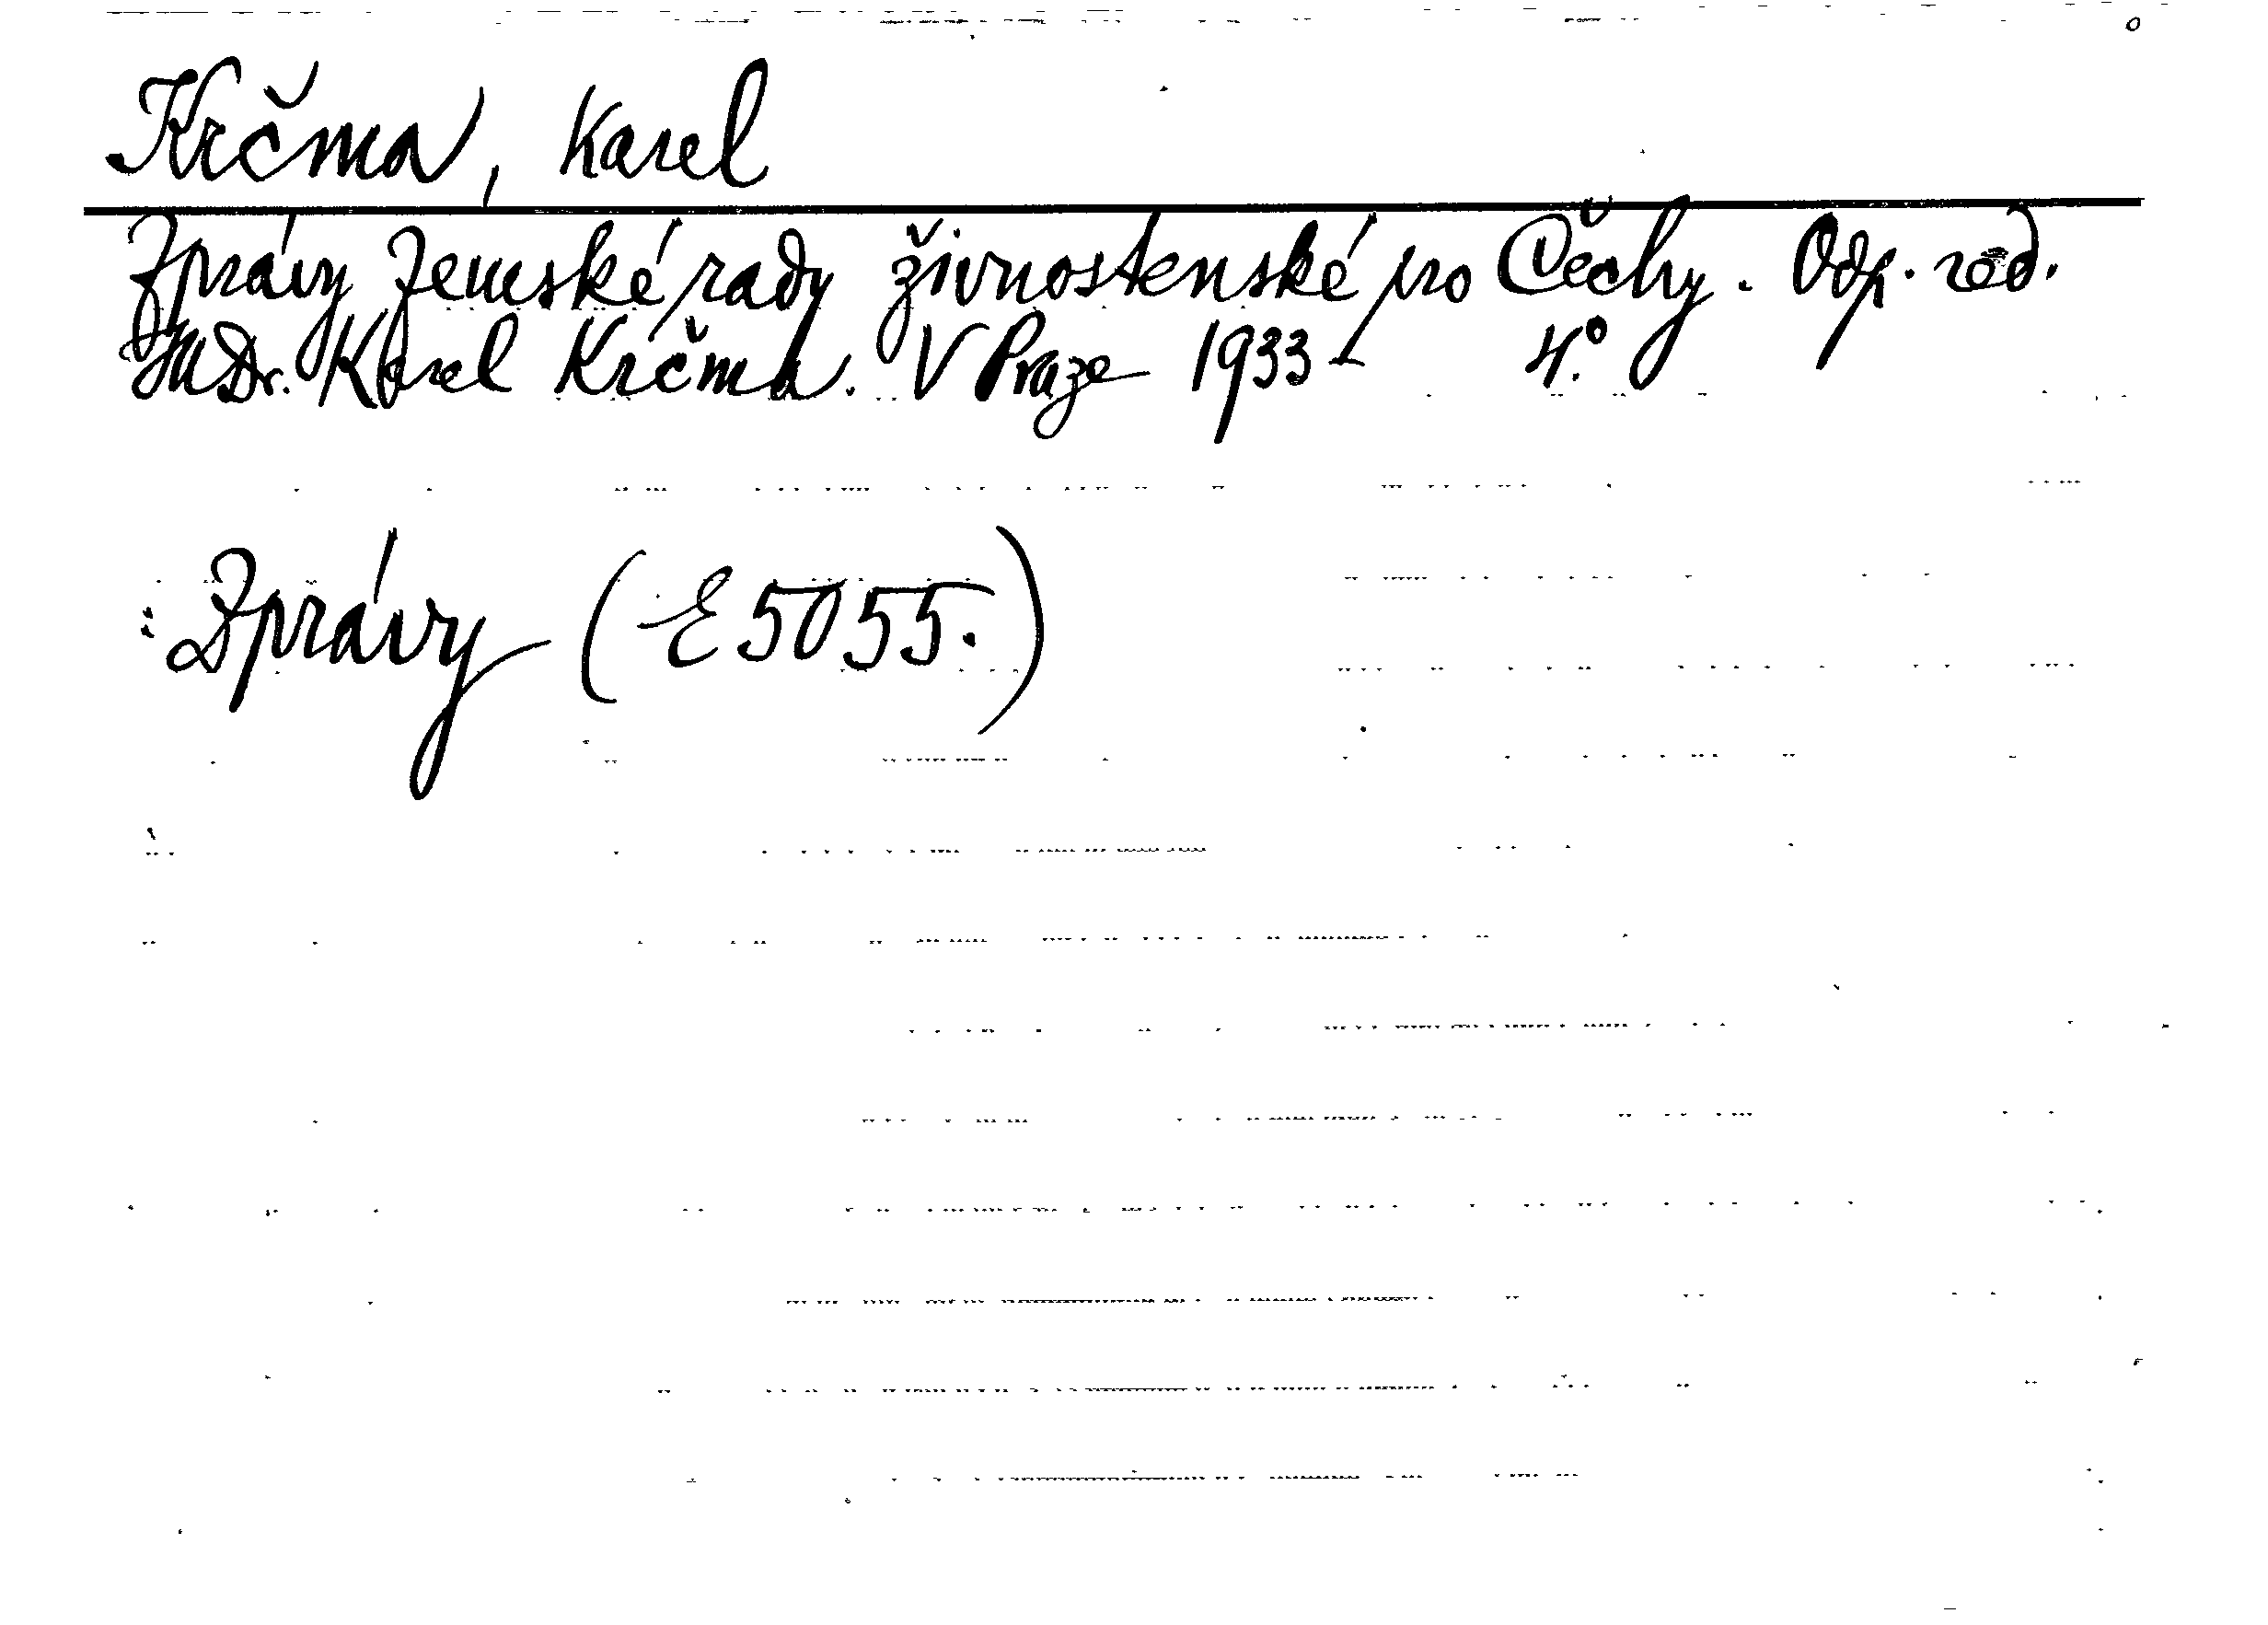 Krčma, Karel
Zprávy Zemské rady živnostenské pro Čechy. Odp. red.
JUDr. Karel Krčma. V Praze 1933- 4.°
Zprávy (E 5055.)